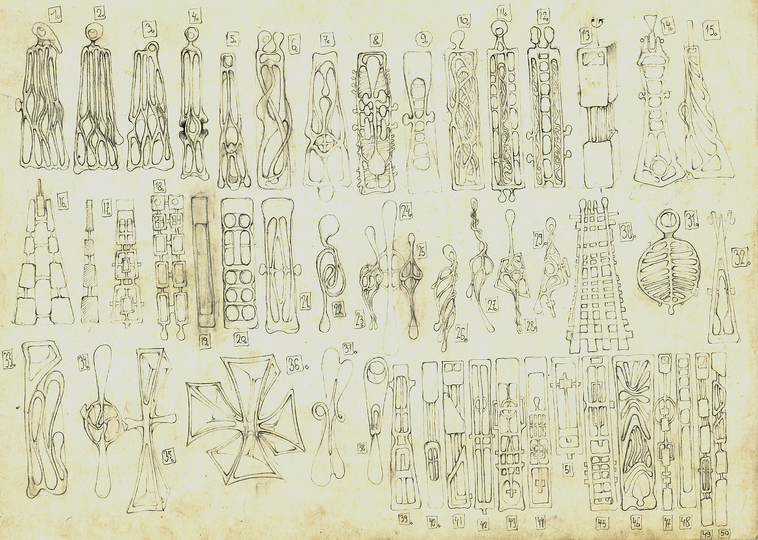 1. 2. 3. 4. 5. 6. 7. 8. 9. 10. 11. 12. 13 14. 15.
16. 17. 18. 19. 20. 21. 22. 23. 24. 25. 26. 27. 28. 29. 30. 31. 32.
33. 34. 35. 36. 37. 38
39. 40. 41 42 43 44 51 45 46 47 48 49 50